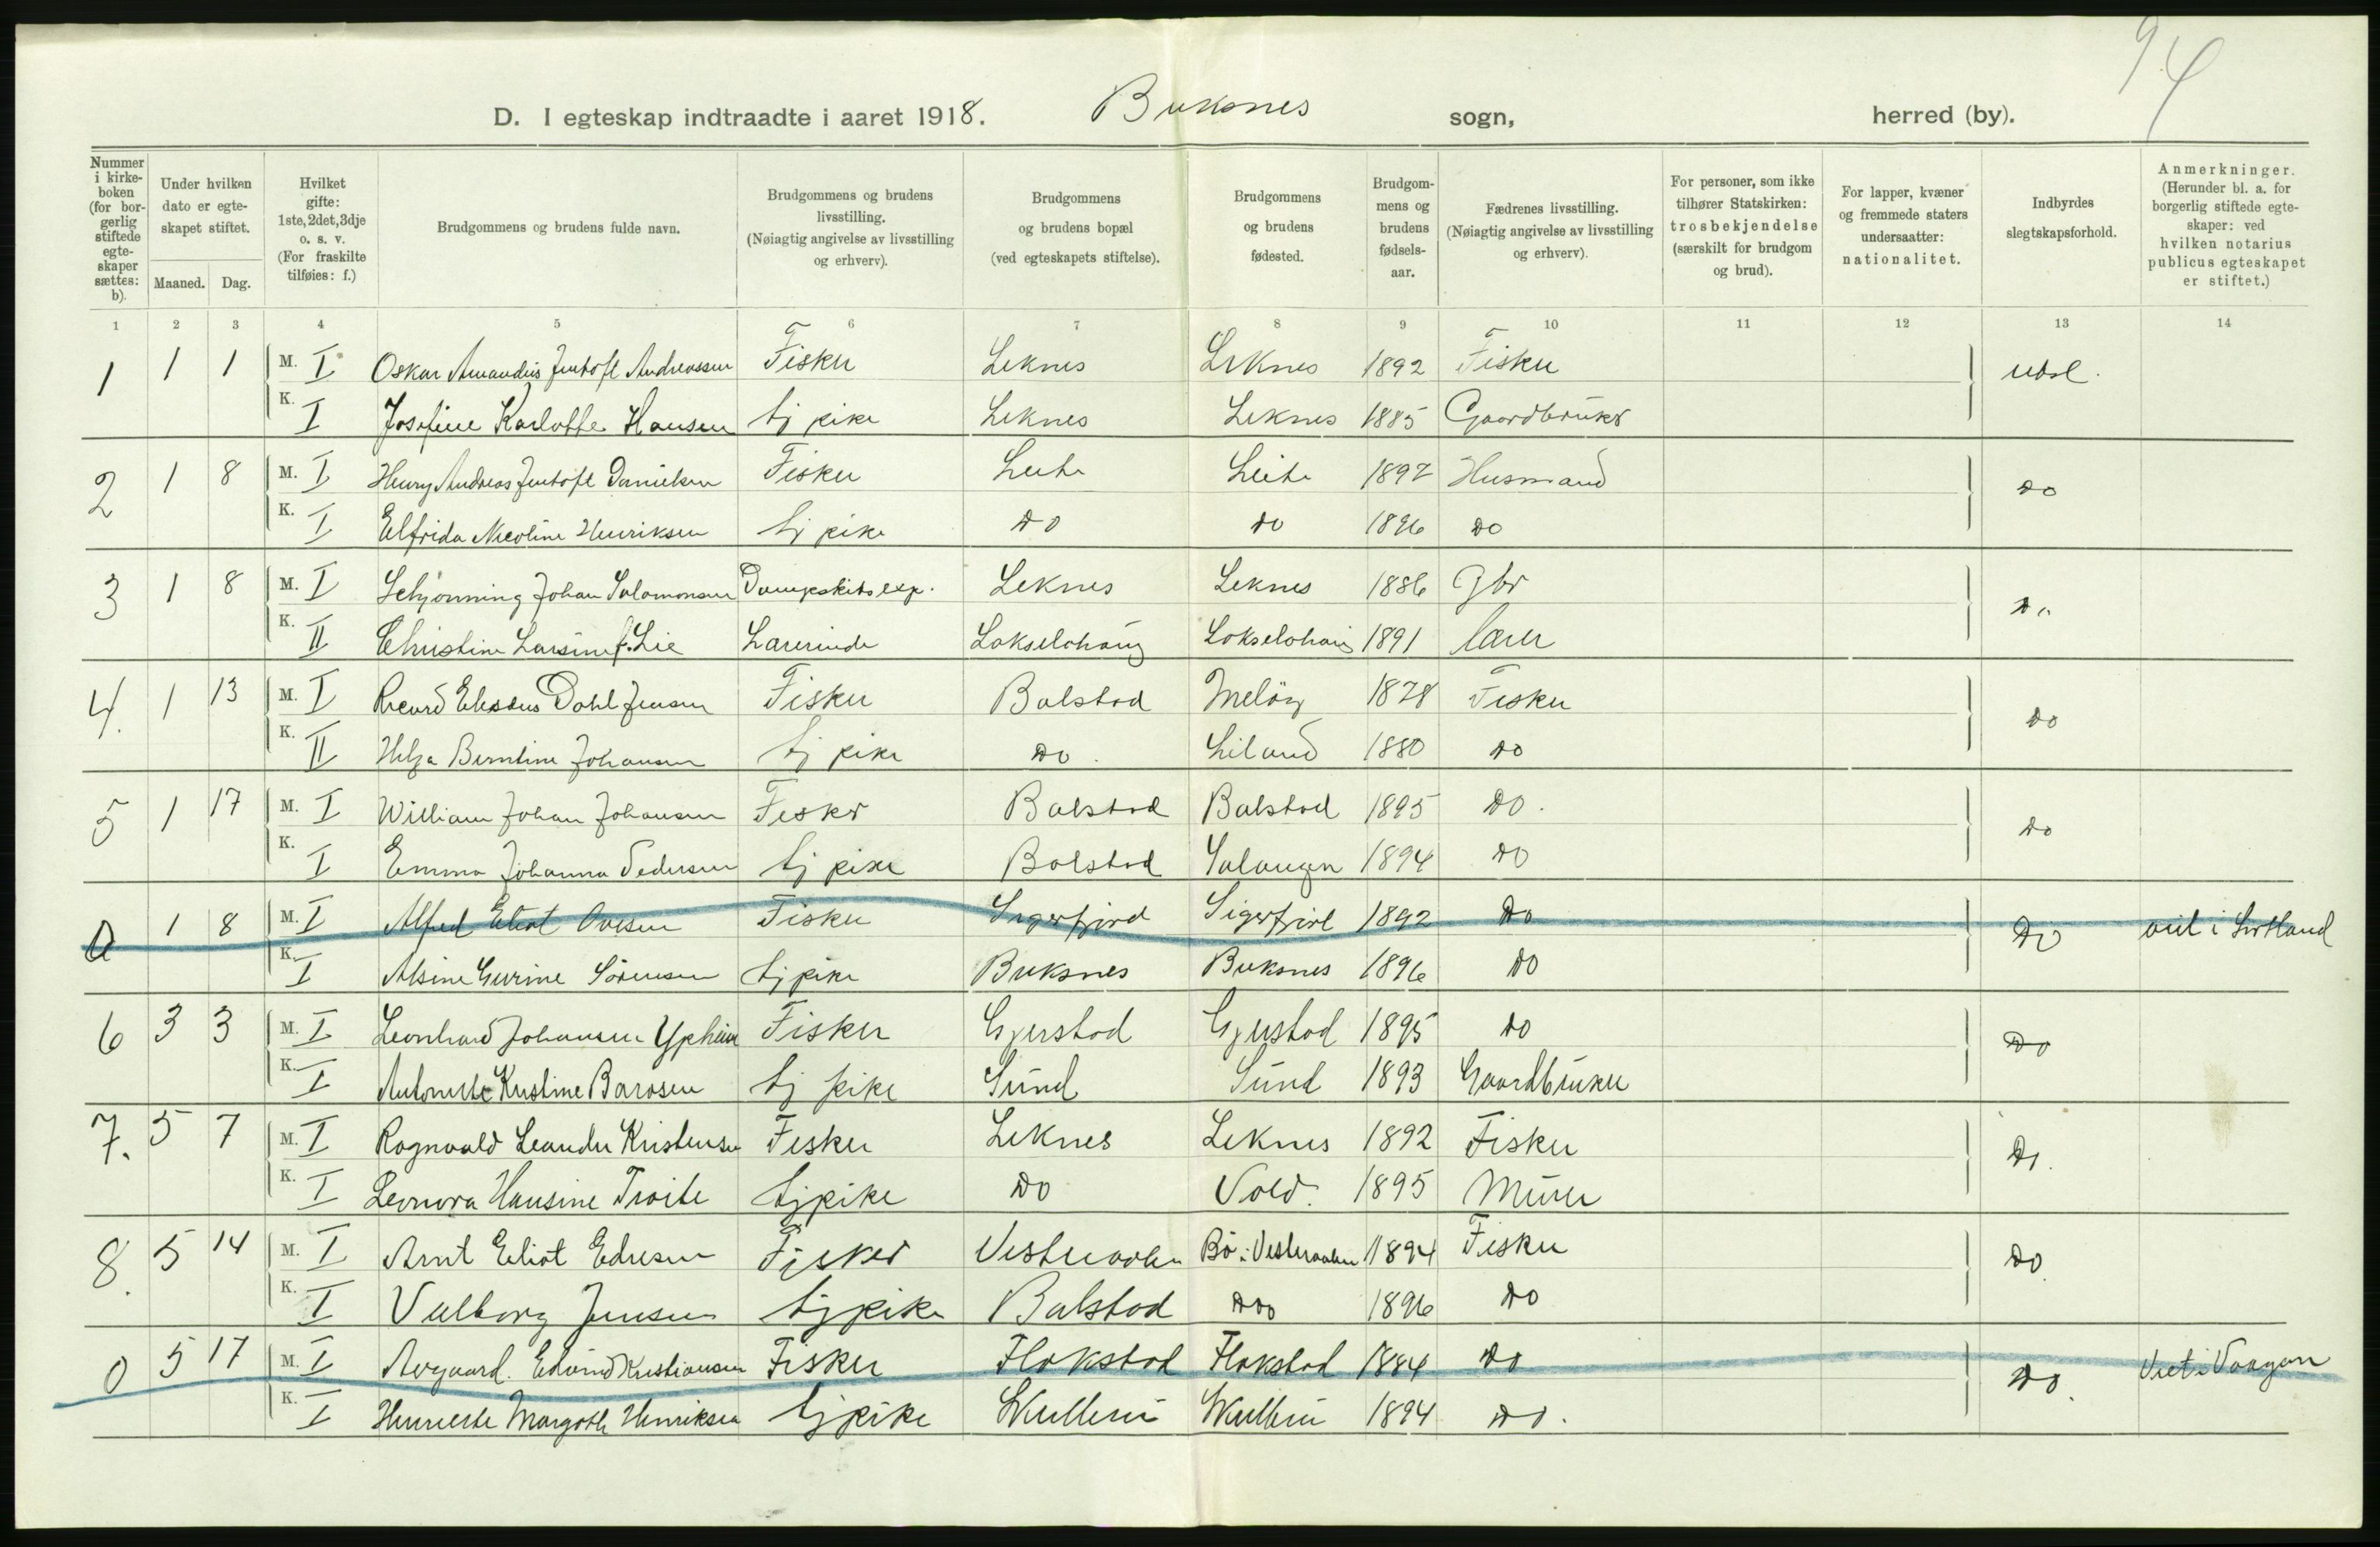 94
D. I egteskap indtraadte i aaret 1918. Buksnes sogn, herred (by).
Nummer i kirke-boken (for bor-gerlig stiftede egte-skaper sættes: b).
Under hvilken dato er egte-skapet stiftet.
Maaned. Dag.
Hvilket gifte: 1ste, 2det, 3dje o. s. v. (For fraskilte tilføies: f.)
Brudgommens og brudens fulde navn.
Brudgommens og brudens livsstilling. (Nøiagtig angivelse av livsstilling og erhverv).
Brudgommens og brudens bopæl (ved egteskapets stiftelse).
Brudgommens og brudens fødested.
Brudgom-mens og brudens fødsels-aar.
Fædrenes livsstilling. (Nøiagtig angivelse av livsstilling og erhverv).
For personer, som ikke tilhører Statskirken: trosbekjendelse (særskilt for brudgom og brud).
For lapper, kvæner og fremmede staters undersaatter: nationalitet.
Indbyrdes slegtskapsforhold.
Anmerkninger. (Herunder bl. a. for borgerlig stiftede egte-skaper: ved hvilken notarius publicus egteskapet er stiftet.)
1 2 3 4 5 6 7 8 9 10 11 12 13 14
1 1 1 M. I Oskar Amandus Jentoft Andreassen Fisker Leknes Leknes 1892 Fisker
K. I Josefine Karlotte Hansen Leknes Leknes 1885 Gaardbruker
2 1 8 M. I Henry Andreas Jentoft Danielsen Fisker Leite Leite 1897 Husmand do
K. I Elfrida Nicoline Henriksen pike do do 1896 do
3 1 8 M. I Schjønning Johan Salomonsen Dampskibsexp. Leknes Leknes 1886 Gbr do
K. II Christine Larsine f. Lie Lærerinde 1891 lærer
4. 1 13 M. I Dahl Jensen Fisker Balstad Meløy 1878 Fisker do
K. II Helga Berntine Johansen pike do Liland 1880 do
5 1 17 M. I William Johan Johansen Fisker Balstad Balstad 1895 do. do
K. I Emma Johanna Pedersen pike Balstad Salangen 1894 do
0 1 8 M. I Alfred Eliot Ovesen Fisker Sigerfjord Sigerfjord 1892 do do viet i Sortland
K. I Alsine Gurine Sørensen pike Buksnes Buksnes 1896 do
6 3 3 M. I Leonhard Johansen Fisker Gjerstad Gjerstad 1895 do do
K. I Kristine pike Sund Sund 1893 Gaardbruker
7. 5 7 M. I Rognvald Leander Kristensen Fisker Leknes Leknes 1892 Fisker do.
K. I Leonora Hansine pike do Vold. 1895 Murer
8. 5 14 M. I Arnt Eliot Edresen Fisker Vesteraalen Bø i Vesteraalen 1894 Fisker do.
K. I Valborg Jensen pike Balstad do 1896 do
0 5 17 M. I Edvind Kristiansen Fisker Flakstad Flakstad 1884 do do. Viet i Vaagan
K. I Henriette Margothe Henriksen pike 1894 do.